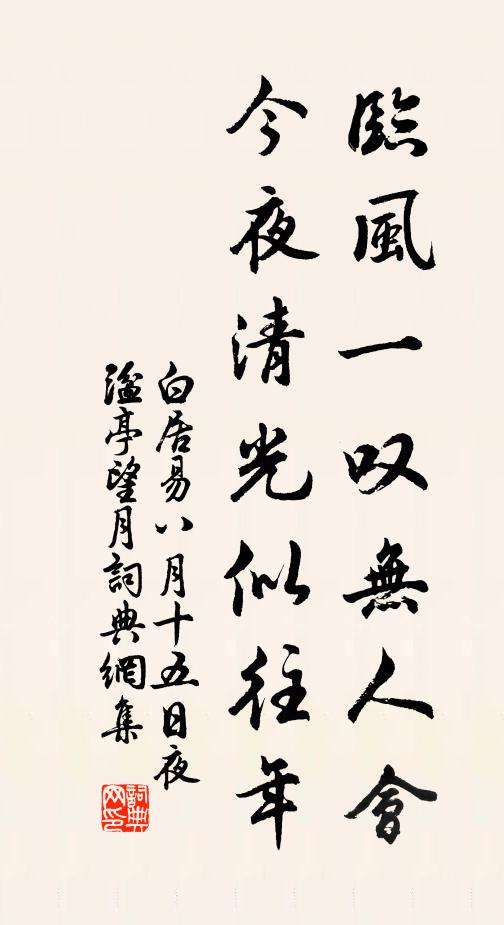 臨風一叹無人會
今夜清光似往年
白居易八月十五日夜
湓亭望月詞典網集
詞典
网印